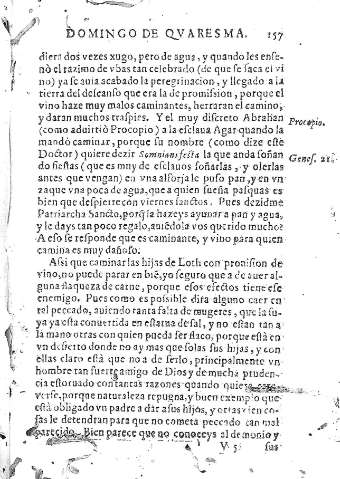 DOMINGO DE QVARESMA. 157
diera dos vezes xugo, pero de agua, y quando les ense-
nò el razimo de vbas tan celebrado (de que se saca el vi
no) ya se auia acabado la peregrinacion, y llegado a la
tierra del descanso que era la de promission, porque el
vino haze muy malos caminantes, herraran el camino,
y daran muchos traspies. Y el muy discreto Abrahan
(como aduirtiò Procopio) a la esclaua Agar quando la
mandò caminar, porque su nombre (como dize este
Doctor) quiere dezir Somnians festa la que anda soñan
do fiestas (que es muy de esclauos soñarlas, y olerlas
antes que vengan) en vna alforja le puso pan, y en vn
zaque vna poca de agua, que a quien sueña pasquas es
bien que despierte con viernes sanctos. Pues dezidme
Patriarcha Sancto, porq̃ la hazeys ayunar a pan y agua,
y le days tan poco regalo, auiẽdola vos querido mucho?
A eso se responde que es caminante, y vino para quien
camina es muy dañoso.
Assi que caminar las hijas de Loth con prouision de
vino, no puede parar en biẽ, yo seguro que a de auer al-
guna flaqueza de carne, porque esos efectos tiene ese
enemigo. Pues como es possible dira alguno caer en
tal peccado, auiendo tanta falta de mugeres, que la su-
ya ya està conuertida en estatua de sal, y no estan tan a
la mano otras con quien pueda ser flaco, porque està en
vn desierto donde no ay mas que solas sus hijas, y con
ellas claro està que no a de serlo, principalmente vn
hombre tan fuerte amigo de Dios y de mucha pruden-
cia estoruado con tantas razones quando quiera
verse, porque naturaleza repugna, y buen exemplo que
està obligado vn padre a dar a sus hijos, y otras cien co-
sas le detendran para que no cometa peccado tan mal
parecido. Bien parece que no conoceys al demonio y
V 5 sus
Procopio.
Genes. 21.